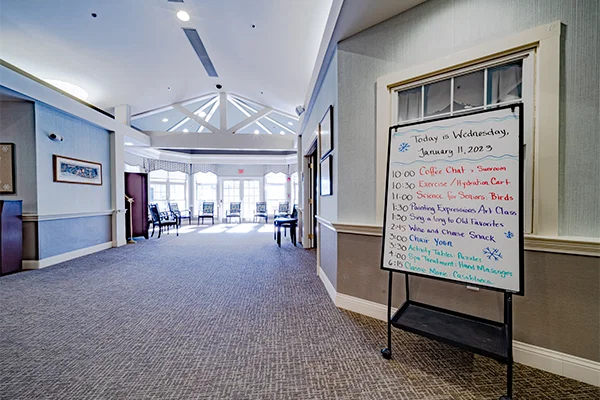 Today is Wednesday,
January 11, 2023
10:00 Coffee Chat > Sunroom
10:30 Exercise / Hydration Cart
11:00 Science for Seniors: Birds
1:30 Painting Expressions Art Class
1:30 Sing a long to Old Favorites
2:45 Wine and Cheese Snack
3:00 Chair Yoga
3:30 Activity Tables: Puzzles
4:00 Spa Treatment: Hand Massages
6:15 Classic Movie: Casablanca